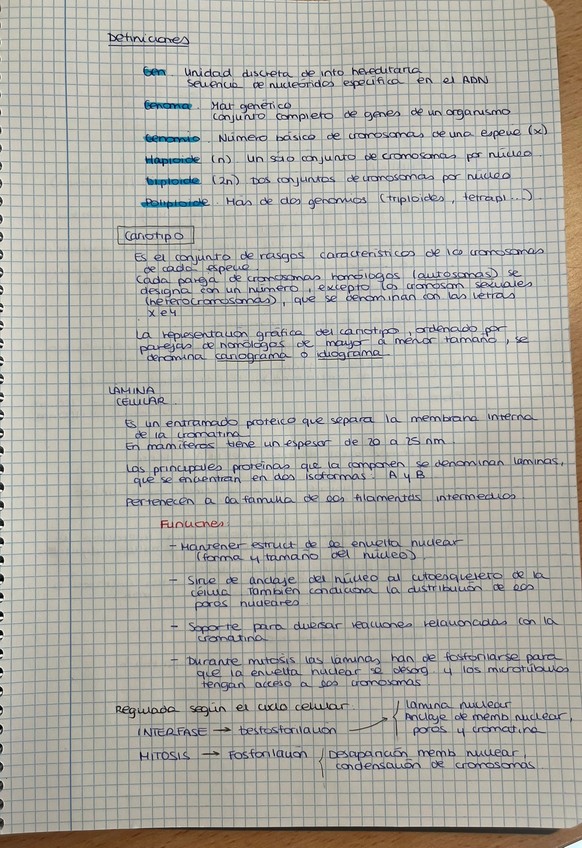 Definiciones
Gen. Unidad discreta de info hereditaria
Secuencia de nucleótidos específica en el ADN
Genoma. Mat genético
Conjunto completo de genes de un organismo
Genomio. Número básico de cromosomas de una especie (x)
Haploide (n) Un solo conjunto de cromosomas por núcleo
Diploide (2n) Dos conjuntos de cromosomas por núcleo
Poliploide. Mas de dos genomios (triploides, tetrapl...)
Cariotipo
Es el conjunto de rasgos característicos de los cromosomas
de cada especie
Cada pareja de cromosomas homólogos (autosomas) se
designa con un número, excepto los cromosom sexuales
(heterocromosomas), que se denominan con las letras
X e Y
La representación gráfica del cariotipo, ordenado por
parejas de homólogos de mayor a menor tamaño, se
denomina cariograma o idiograma
LAMINA
CELULAR
Es un entramado proteico que separa la membrana interna
de la cromatina
En mamíferos tiene un espesor de 20 a 25 nm
Las principales proteínas que la componen se denominan laminas,
que se encuentran en dos isoformas: A y B
Pertenecen a la familia de los filamentos intermedios
Funciones:
- Mantener estruct de la envuelta nuclear
(forma y tamaño del núcleo)
- Sirve de anclaje del núcleo al citoesqueleto de la
célula También condiciona la distribución de los
poros nucleares
- Soporte para diversar reacciones relacionadas con la
cromatina
- Durante mitosis las láminas han de fosforilarse para
que la envuelta nuclear se desorg y los microtúbulos
tengan acceso a los cromosomas
Regulada según el ciclo celular
INTERFASE → Desfosforilación → Lámina nuclear
Anclaje de memb nuclear,
poros y cromatina
MITOSIS → Fosforilación Desaparición memb nuclear,
condensación de cromosomas